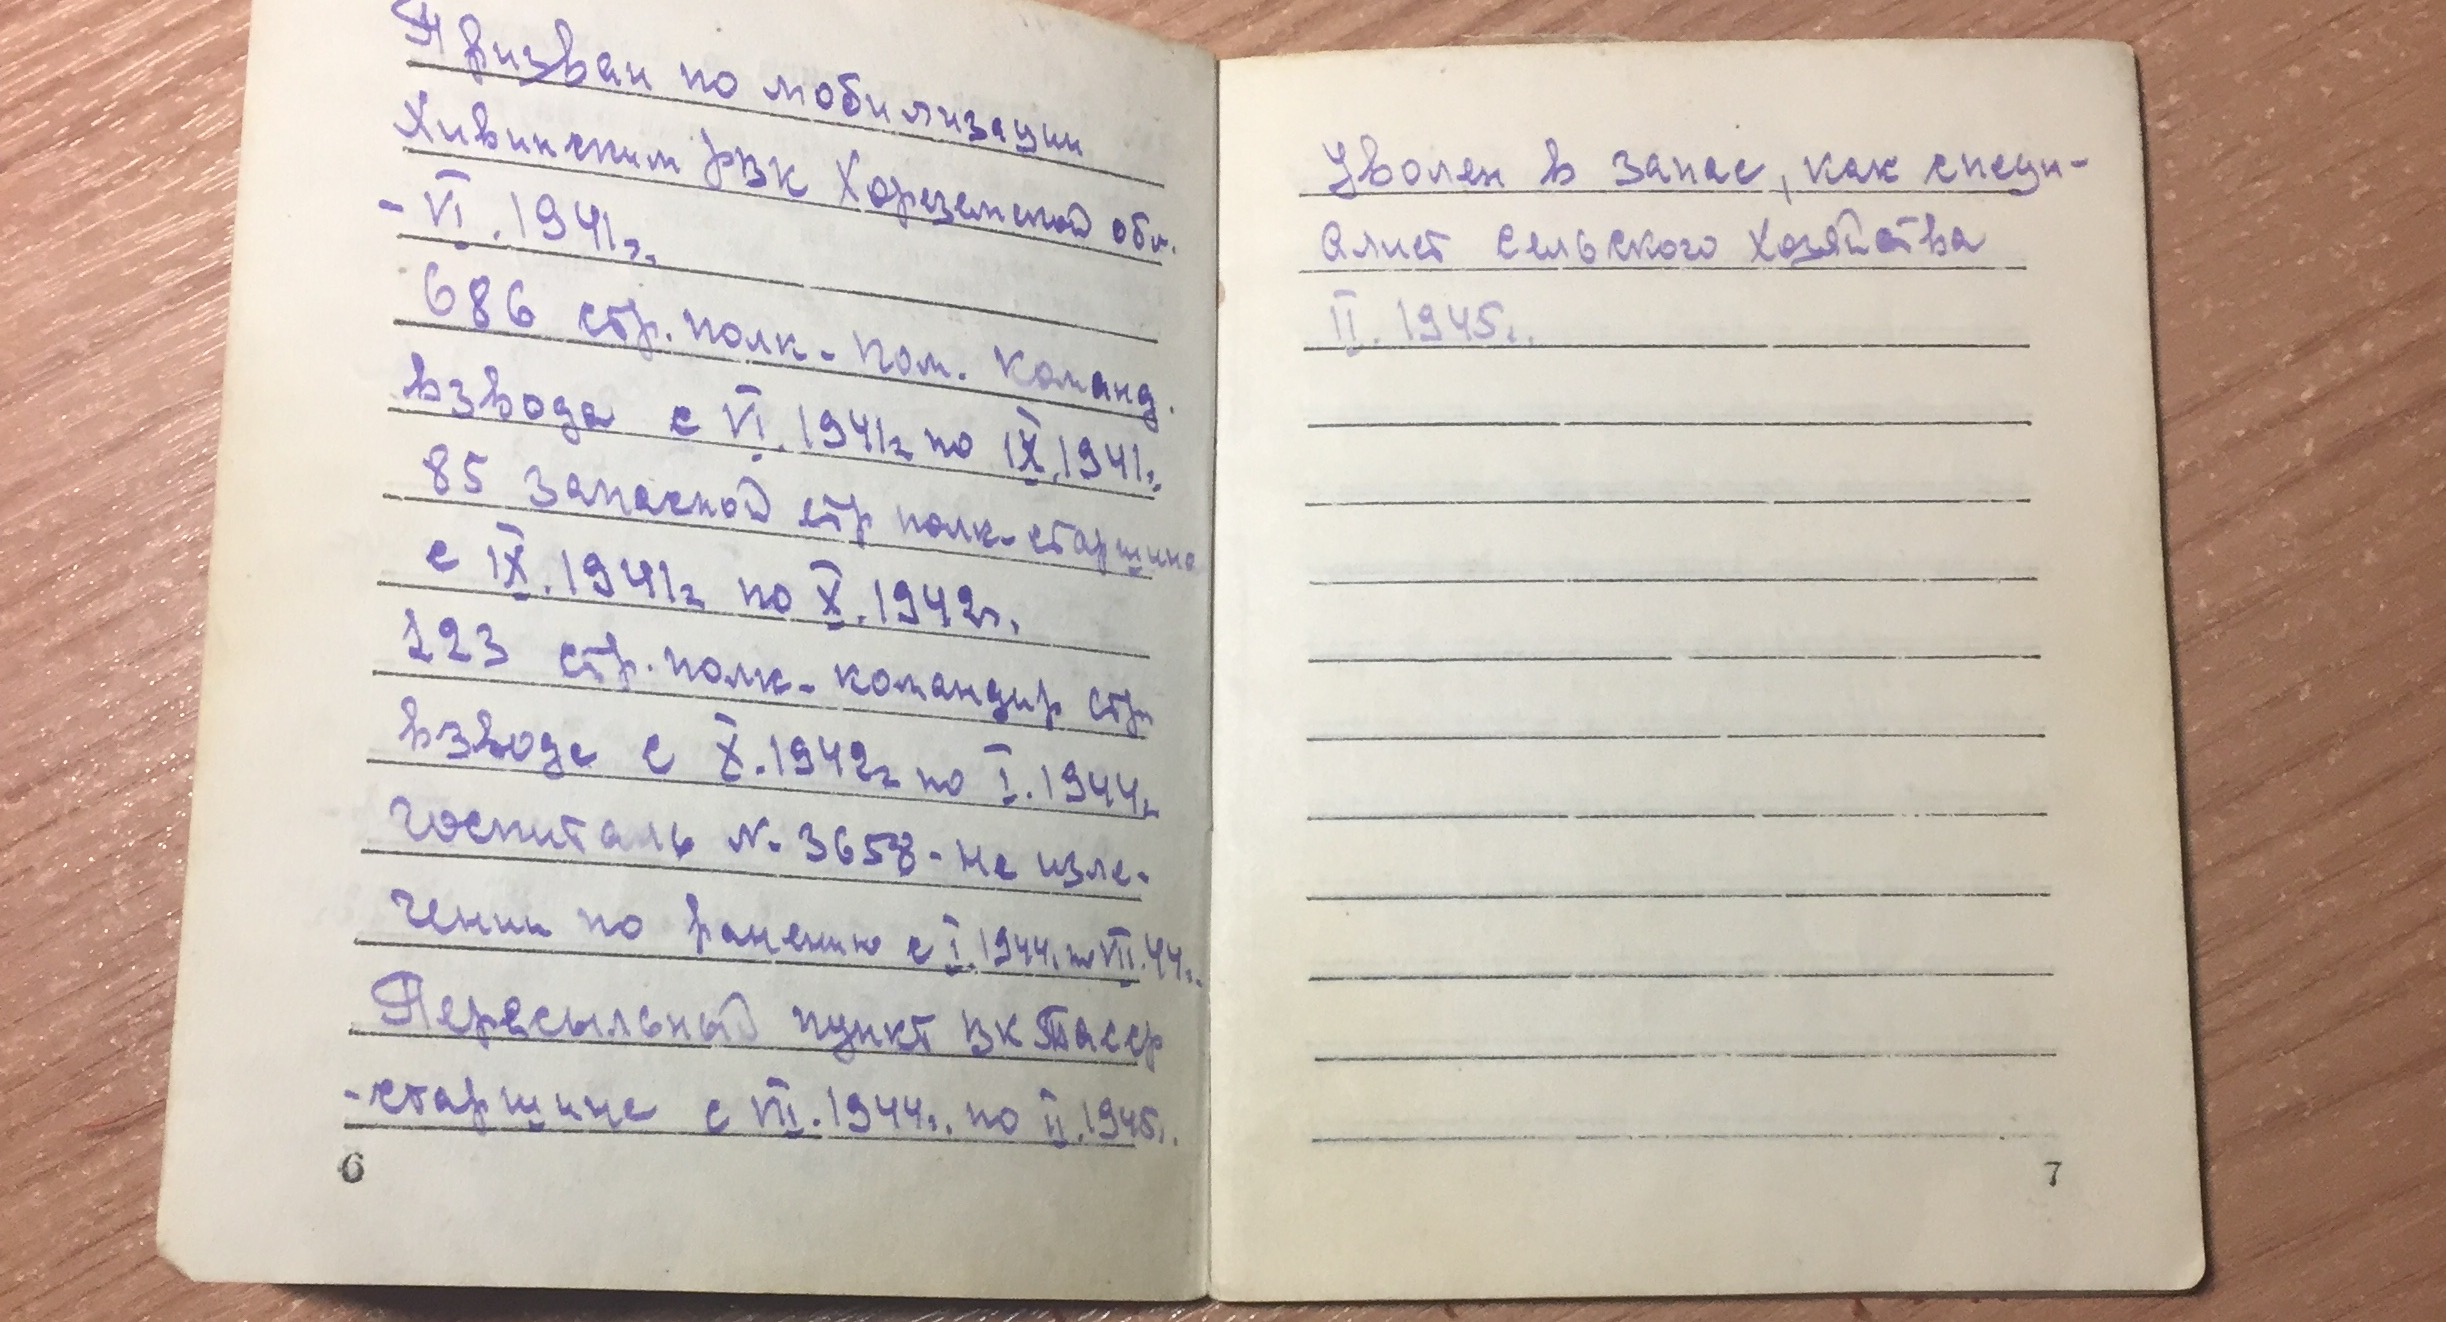 Призван по мобилизации
Хивинским РВК Хорезмской обл.
- VI. 1941г.
686 стр. полк - пом. команд.
взвода с VI. 1941г по IX. 1941г.
85 запасной стр полк - старшина
с IX. 1941г по X. 1942г.
123 стр. полк - командир стр.
взвода с X. 1942г по I. 1944г
госпиталь №. 3658 - на изле-
чении по ранению с I. 1944г. по VII. 44г.
Пересыльный пункт ВК ТАССР
- старшина с VII. 1944г. по II. 1945г.
6
Уволен в запас, как специ-
алист сельского хозяйства
II. 1945г.
7